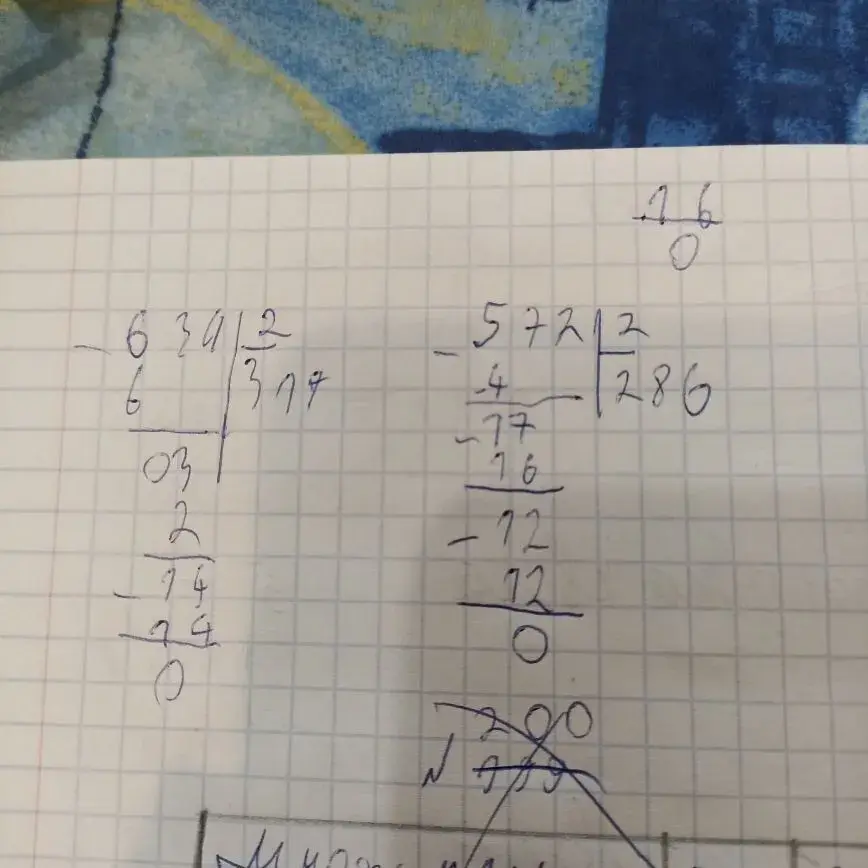 16
0
- 634 | 2
6 317
03
2
- 14
14
0
- 572 | 2
-4 286
- 17
16
- 12
12
0
200